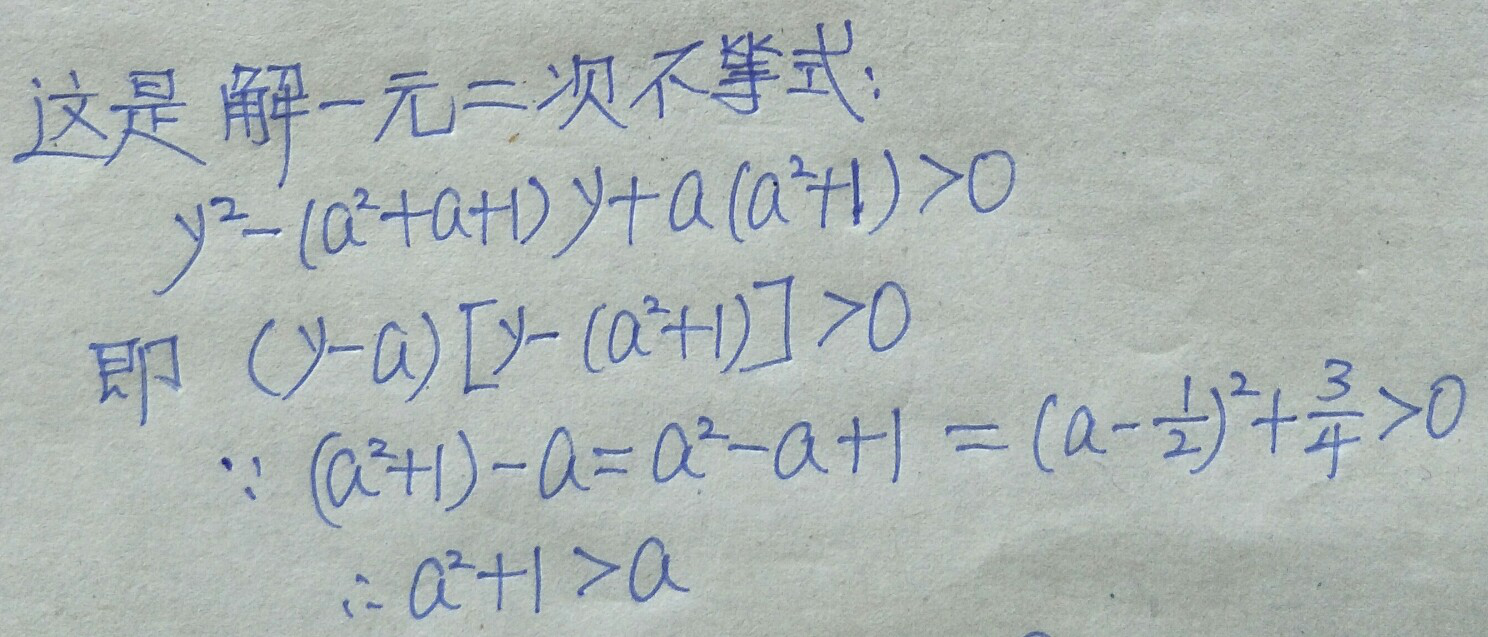 这是解一元二次不等式:
y²-(a²+a+1)y+a(a²+1)>0
即 (y-a)[y-(a²+1)]>0
∵ (a²+1)-a=a²-a+1=(a-1/2)²+3/4>0
∴a²+1>a